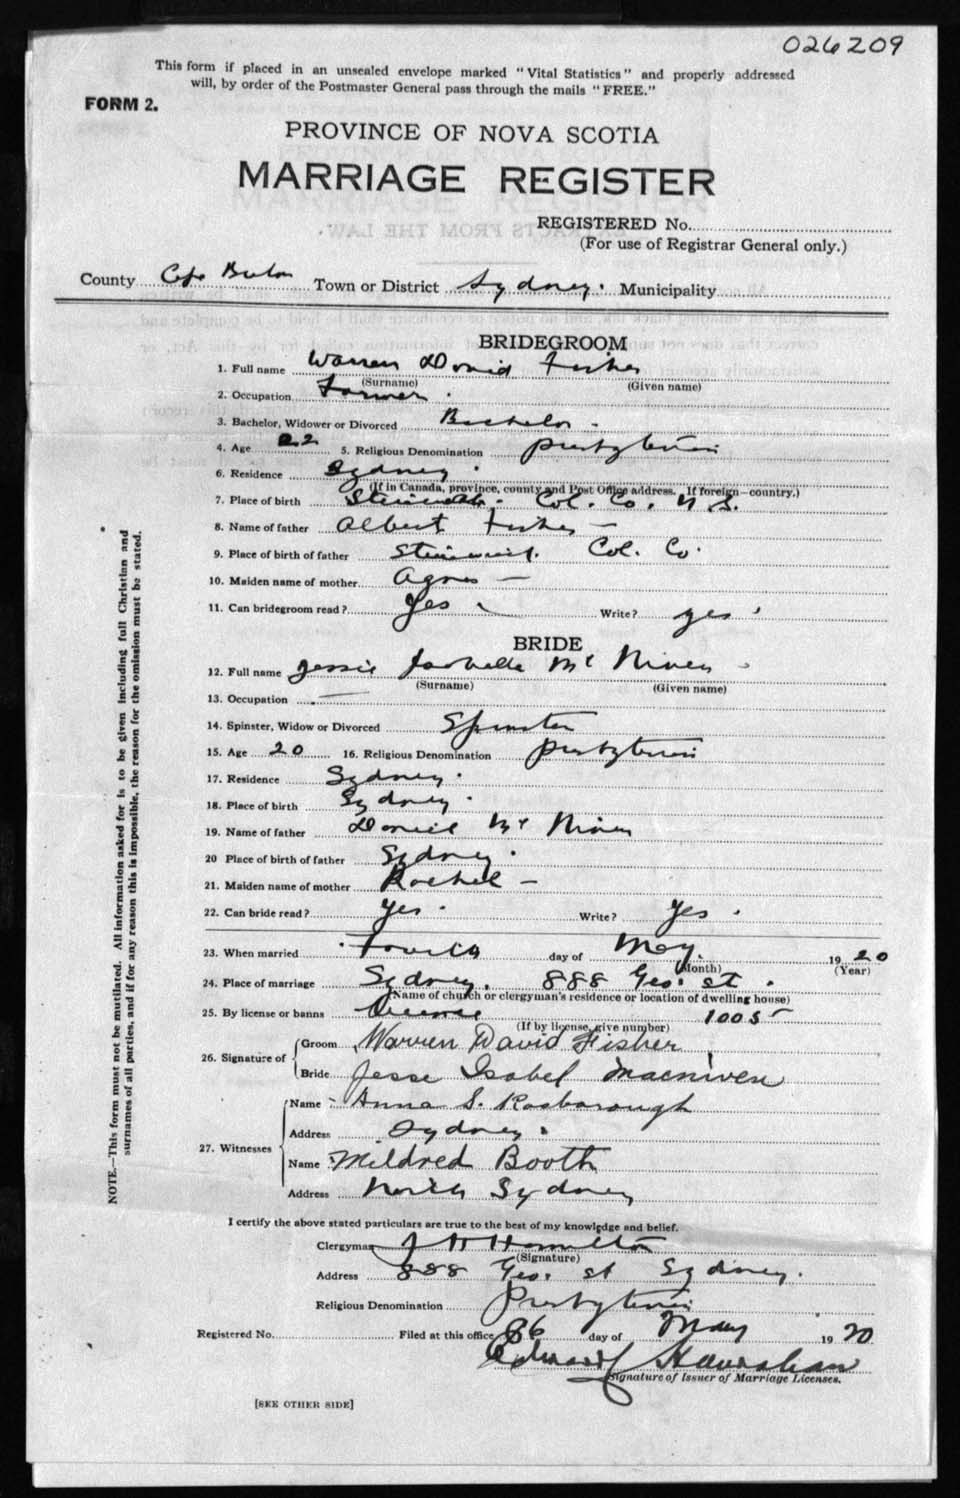 026209
This form if placed in an unsealed envelope marked "Vital Statistics" and properly addressed
will, by order of the Postmaster General pass through the mails "FREE."
FORM 2.
PROVINCE OF NOVA SCOTIA
MARRIAGE REGISTER
REGISTERED No.
(For use of Registrar General only.)
County Cape Breton Town or District Sydney. Municipality
BRIDEGROOM
1. Full name Warren David Fisher
(Surname) (Given name)
2. Occupation Farmer.
3. Bachelor, Widower or Divorced Bachelor
4. Age 22 5. Religious Denomination Presbyterian
6. Residence Sydney.
(If in Canada, province, county and Post Office address. If foreign—country.)
7. Place of birth Col. Co. N S.
8. Name of father Albert Fisher —
9. Place of birth of father Col. Co.
10. Maiden name of mother Agnes —
11. Can bridegroom read? Yes Write? yes
BRIDE
12. Full name Jessie Isabelle Mc Niven
(Surname) (Given name)
13. Occupation —
14. Spinster, Widow or Divorced Spinster
15. Age 20 16. Religious Denomination Presbyterian
17. Residence Sydney.
18. Place of birth Sydney.
19. Name of father Daniel Mc Niven
20 Place of birth of father Sydney.
21. Maiden name of mother Rachel —
22. Can bride read? Yes. Write? Yes.
23. When married Fourth day of May. 1920
(Month) (Year)
24. Place of marriage Sydney. 888 Geo. St.
(Name of church or clergyman's residence or location of dwelling house)
25. By license or banns License 1005
(If by license, give number)
26. Signature of Groom Warren David Fisher
Bride Jesse Isabel Macniven
27. Witnesses Name Anna S. Rosborough
Address Sydney.
Name Mildred Booth
Address North Sydney
I certify the above stated particulars are true to the best of my knowledge and belief.
Clergyman J H Hamilton
(Signature)
Address 888 Geo. St Sydney.
Religious Denomination Presbyterian
Registered No. Filed at this office 6 day of May 1920
Edward
Signature of Issuer of Marriage Licenses.
[SEE OTHER SIDE]
NOTE.—This form must not be mutilated. All information asked for is to be given including full Christian and
surnames of all parties, and if for any reason this is impossible, the reason for the omission must be stated.